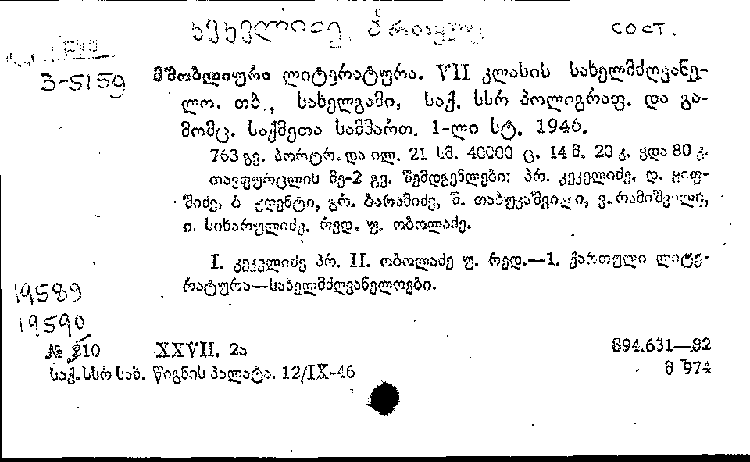 კეკელიძე, კორნელი сост.
3-5159
მშობლიური ლიტერატურა. VII კლასის სახელმძღვანე-
ლო. თბ., სახელგამი, საქ. სსრ პოლიგრაფ. და გა-
მომც. საქმეთა სამმართ. 1-ლი სტ. 1946.
763 გვ. პორტრ. და ილ. 21 სმ. 40000 ც. 14 მ. 20 კ. ყდა 80 კ.
თავფურცლის მე-2 გვ. შემდგენლები: პრ. კეკელიძე, დ.
შიძე, ბ ჟღენტი, გრ. ბარამიძე, ვ. რამიშვილი,
ი. სიხარულიძე. რედ. უ. ობოლაძე.
I. კეკელიძე პრ. II. ობოლაძე უ. რედ.—1. ქართული ლიტე-
რატურა—სახელმძღვანელოები.
19589
19590
№ 210 XXVII. 2ა 894.631—82
საქ. სსრ სახ. წიგნის პალატა. 12/IX-46 მ 974